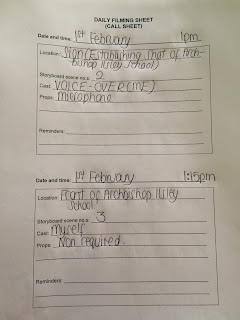 DAILY FILMING SHEET
(CALL SHEET)
Date and time: 1st February 1pm
Location: Sign (Establishing shot of Arch-
bishop Ilsley School)
Storyboard scene no.s: 2
Cast: VOICE-OVER (ME)
Props: Microphone
Reminders:
Date and time: 1st February 1:15pm
Location: Front of Archbishop Ilsley
School.
Storyboard scene no.s: 3
Cast: Myself
Props: Non required.
Reminders: